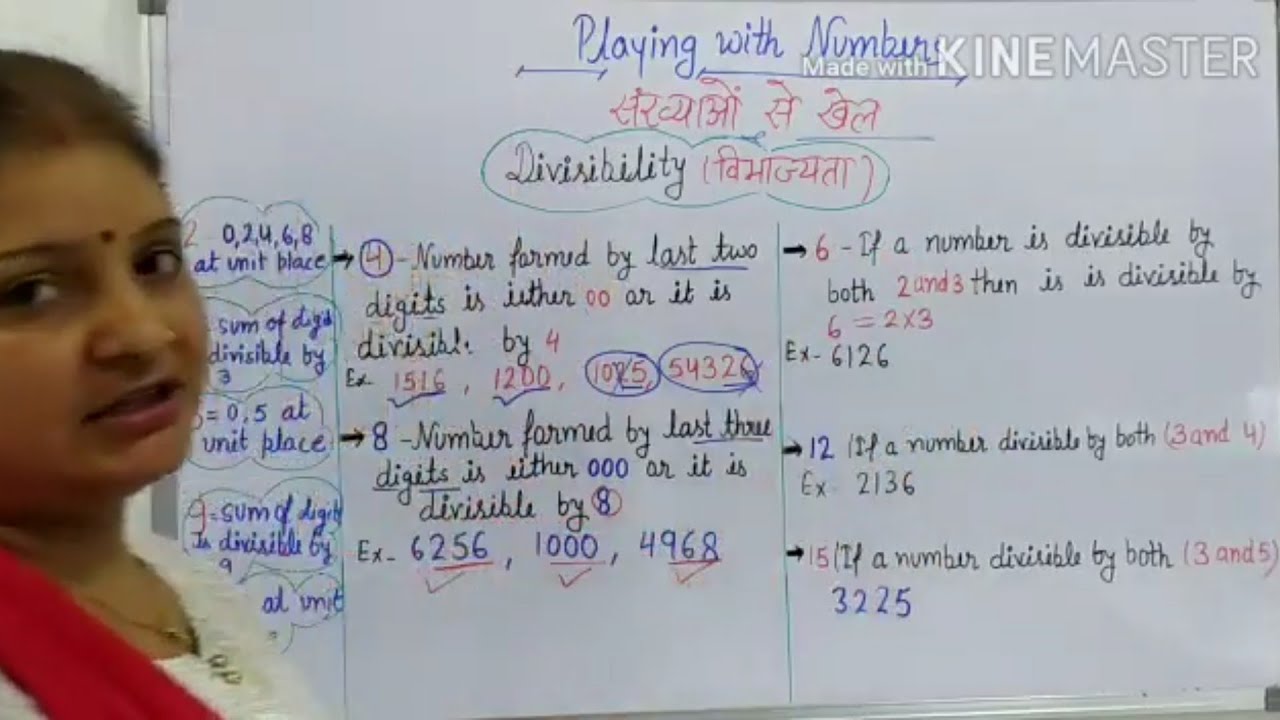 Playing with Numbers
Made with KINEMASTER
संख्याओं से खेल
Divisibility (विभाज्यता)
2 0,2,4,6,8
at unit place
sum of digi
divisible by
3
= 0,5 at
unit place
9=sum of digits
is divisible by
9
at unit
→ 4 - Number formed by last two
digits is iether 00 or it is
divisible by 4
Ex- 1516, 1200, 1025, 54326
→ 8 - Number formed by last three
digits is either 000 or it is
divisible by 8
Ex- 6256, 1000, 4968
→ 6 - If a number is divisible by
both 2 and 3 then is is divisible by
6 = 2×3
Ex- 6126
→ 12 (If a number divisible by both (3 and 4)
Ex- 2136
→ 15 (If a number divisible by both (3 and 5)
3225